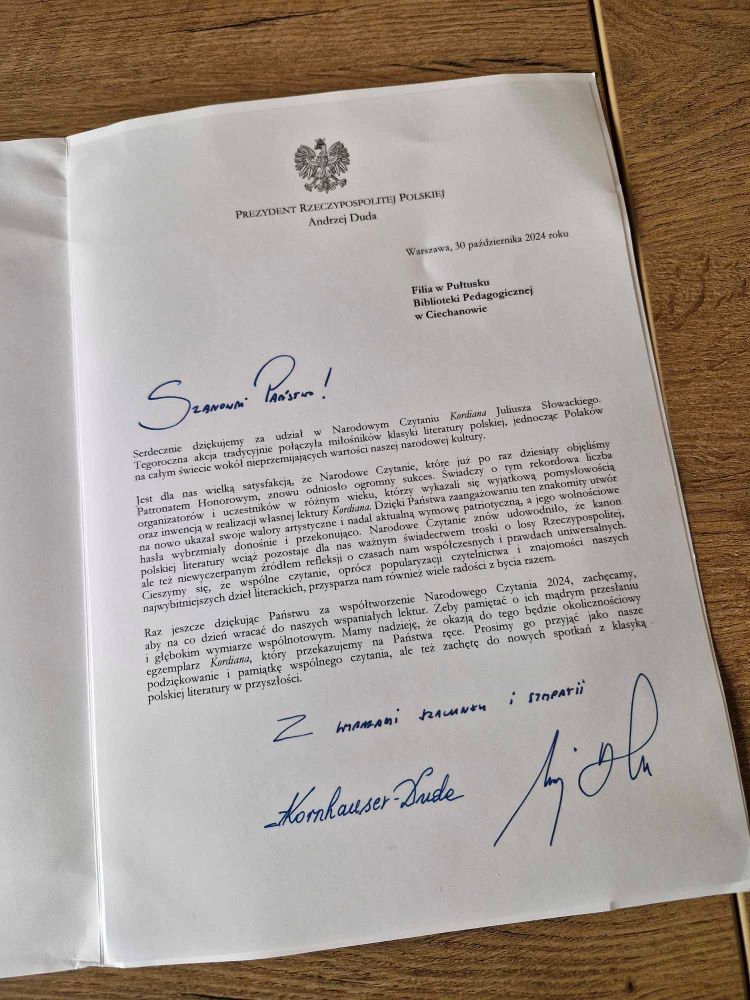 PREZYDENT RZECZYPOSPOLITEJ POLSKIEJ
Andrzej Duda
Warszawa, 30 października 2024 roku
Filia w Pułtusku
Biblioteki Pedagogicznej
w Ciechanowie
Szanowni Państwo!
Serdecznie dziękujemy za udział w Narodowym Czytaniu Kordiana Juliusza Słowackiego.
Tegoroczna akcja tradycyjnie połączyła miłośników klasyki literatury polskiej, jednocząc Polaków
na całym świecie wokół nieprzemijających wartości naszej narodowej kultury.
Jest dla nas wielką satysfakcją, że Narodowe Czytanie, które już po raz dziesiąty objęliśmy
Patronatem Honorowym, znowu odniosło ogromny sukces. Świadczy o tym rekordowa liczba
organizatorów i uczestników w różnym wieku, którzy wykazali się wyjątkową pomysłowością
oraz inwencją w realizacji własnej lektury Kordiana. Dzięki Państwa zaangażowaniu ten znakomity utwór
na nowo ukazał swoje walory artystyczne i nadal aktualną wymowę patriotyczną, a jego wolnościowe
hasła wybrzmiały donośnie i przekonująco. Narodowe Czytanie znów udowodniło, że kanon
polskiej literatury wciąż pozostaje dla nas ważnym świadectwem troski o losy Rzeczypospolitej,
ale też niewyczerpanym źródłem refleksji o czasach nam współczesnych i prawdach uniwersalnych.
Cieszymy się, że wspólne czytanie, oprócz popularyzacji czytelnictwa i znajomości naszych
najwybitniejszych dzieł literackich, przysparza nam również wiele radości z bycia razem.
Raz jeszcze dziękując Państwu za współtworzenie Narodowego Czytania 2024, zachęcamy,
aby na co dzień wracać do naszych wspaniałych lektur. Żeby pamiętać o ich mądrym przesłaniu
i głębokim wymiarze wspólnotowym. Mamy nadzieję, że okazją do tego będzie okolicznościowy
egzemplarz Kordiana, który przekazujemy na Państwa ręce. Prosimy go przyjąć jako nasze
podziękowanie i pamiątkę wspólnego czytania, ale też zachętę do nowych spotkań z klasyką
polskiej literatury w przyszłości.
Z wyrazami szacunku i sympatii
Kornhauser-Duda